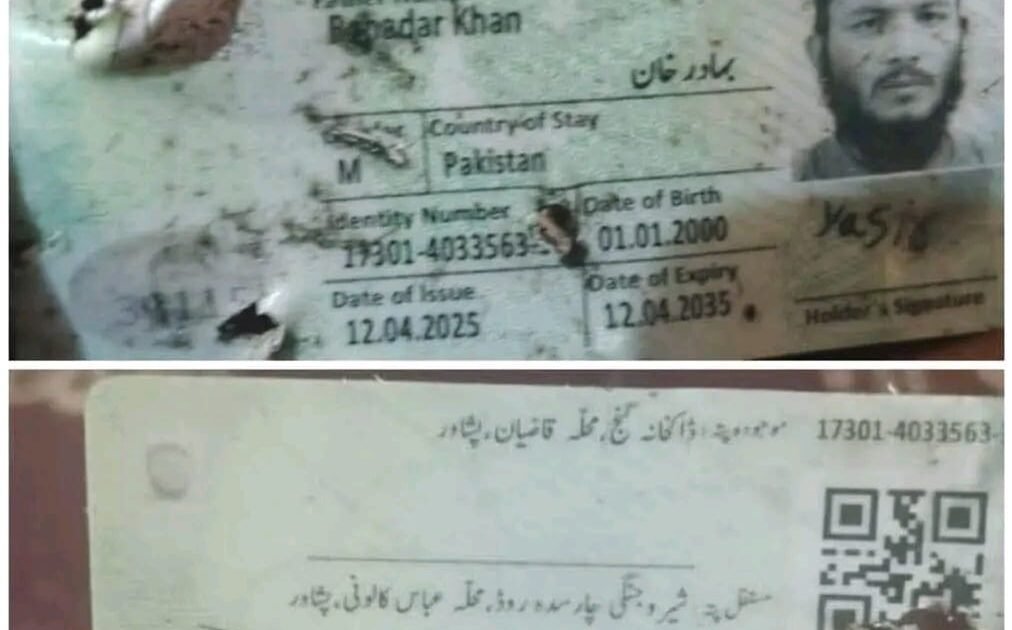 Bahadar Khan
بہادر خان
Country of Stay
M Pakistan
Identity Number Date of Birth
17301-4033563- 01.01.2000
Date of Issue Date of Expiry
12.04.2025 12.04.2035
Yasir
Holder's Signature
موجودہ پتہ: ڈاکخانہ گنج، محلہ قاضیان، پشاور 17301-4033563-
مستقل پتہ: چارسدہ روڈ، محلہ عباس کالونی، پشاور